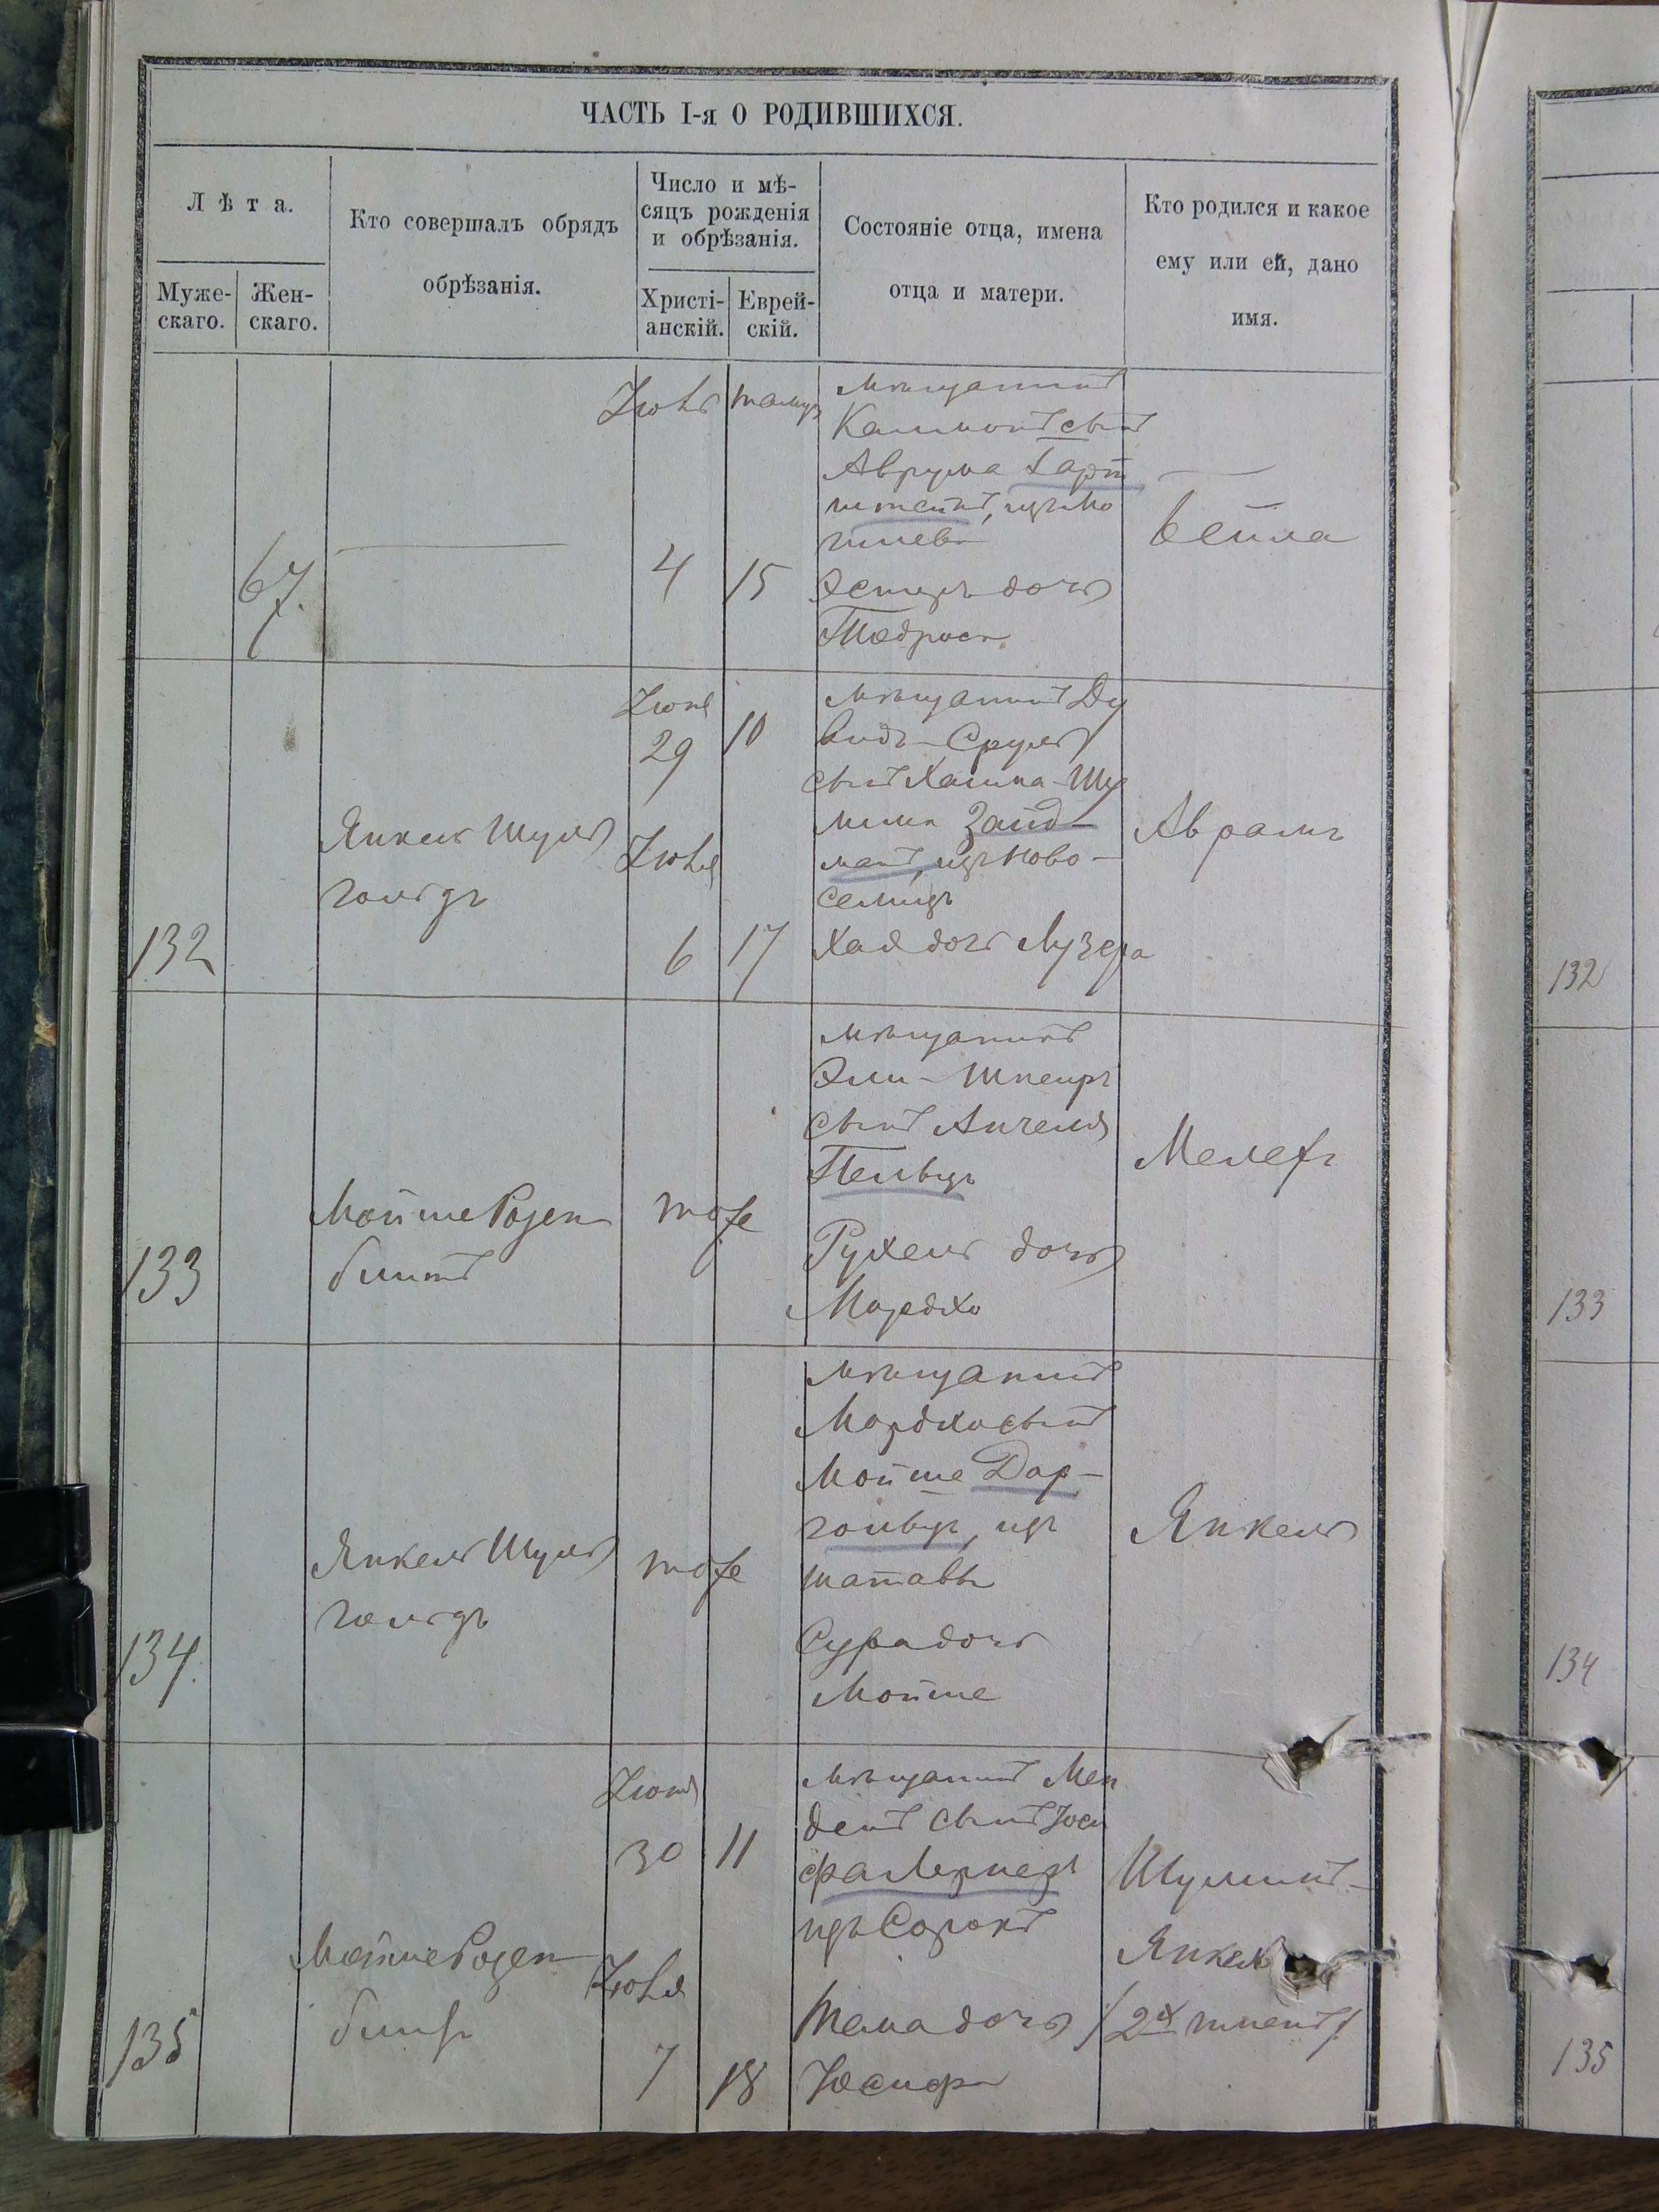 ЧАСТЬ I-я О РОДИВШИХСЯ.
Лѣта.
Муже-
скаго.
Жен-
скаго.
Кто совершалъ обрядъ
обрѣзанія.
Число и мѣ-
сяцъ рожденія
и обрѣзанія.
Христі-
анскій.
Еврей-
скій.
Состояніе отца, имена
отца и матери.
Кто родился и какое
ему или ей, дано
имя.
67.
Іюль
4
тамуз
15
мѣщанинъ
сынъ
Аврума Гарт
штейнъ, изъ Мо
гилева
Эстеръ дочь
Тодроса
Бейла
132
Янкель Шуль
гольдъ
Іюня
29
10
Іюля
6
17
мѣщанинъ Ду
видъ-Сруль
сынъ Хаима-Шу
лима Зайд-
манъ, изъ Ново-
селицъ
Хая дочь Лузера
Аврамъ
133
Мойше Розен
блитъ
тоже
мѣщанинъ
Эли-Шнеиръ
сынъ Анчеля
Рухель дочь
Мордхо
Мелехъ
134.
Янкель Шуль
гольдъ
тоже
мѣщанинъ
Мордхо сынъ
Мойше Дар-
гольцъ, изъ
Шатавы
Сура дочь
Мойше
Янкель
135
Мойше Розен
блитъ
Іюня
30
11
Іюля
7
18
мѣщанинъ Мен
дель сынъ Іоси
фа Лернеръ
изъ Сорокъ
дочь
Іосифа
Шулимъ-
Янкель
132
133
134
135